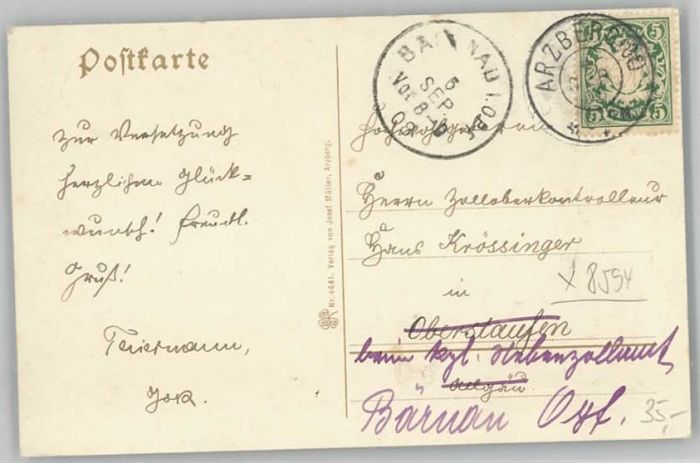 Postkarte
zur Versetzung
herzlichen Glück=
wunsch! Freundl.
Gruß!
Nr. 4441. Verlag von Josef Müller, Arzberg.
BÄRNAU I. OPF.
5
SEP
Vor 8-10
ARZBERG
5
5
Hochwohlgeboren
Herrn Zolloberkontrolleur
Hans Krössinger
in
Oberstaufen
beim kgl. Nebenzollamt
Allgäu.
Bärnau Opf.
X 8594
35,-